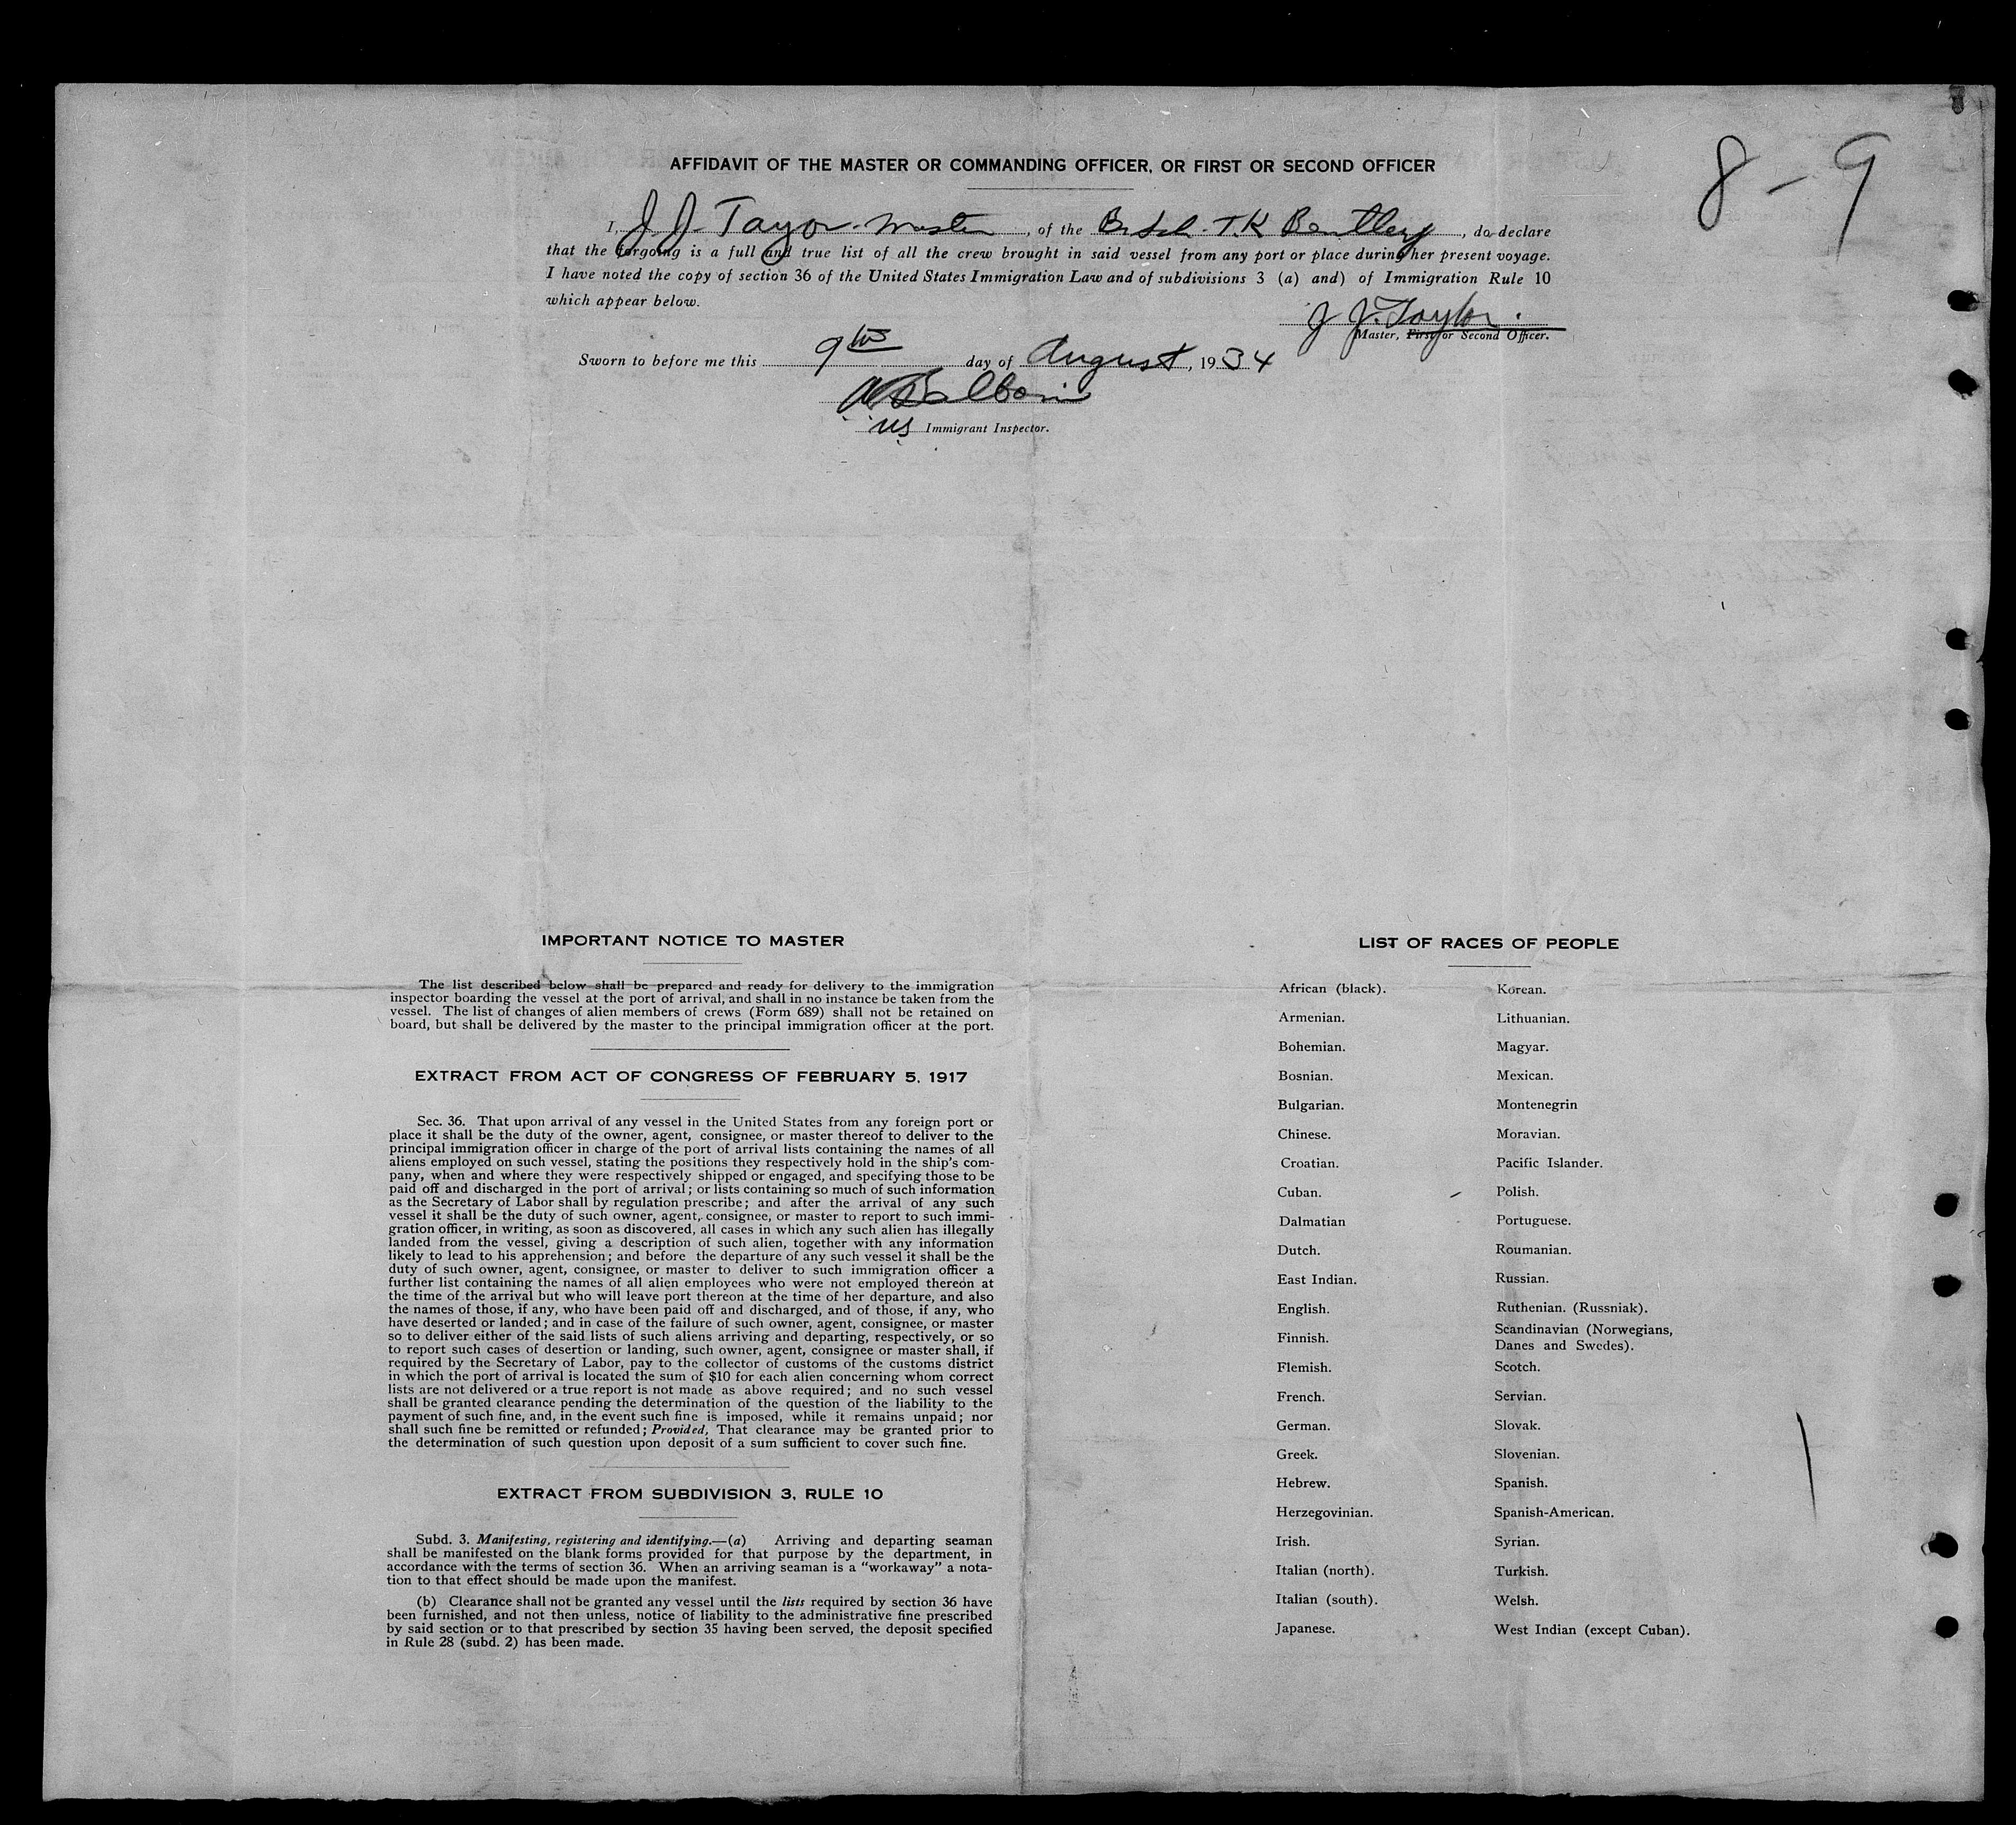 8 - 9
AFFIDAVIT OF THE MASTER OR COMMANDING OFFICER, OR FIRST OR SECOND OFFICER
I, J. J. Tayor. Master, of the Br Sch. T.K Bentley, do declare
that the forgoing is a full and true list of all the crew brought in said vessel from any port or place during her present voyage.
I have noted the copy of section 36 of the United States Immigration Law and of subdivisions 3 (a) and) of Immigration Rule 10
which appear below.
J J. Taylor.
Master, First or Second Officer.
Sworn to before me this 9th day of August, 1934
US Immigrant Inspector.
IMPORTANT NOTICE TO MASTER
The list described below shall be prepared and ready for delivery to the immigration
inspector boarding the vessel at the port of arrival, and shall in no instance be taken from the
vessel. The list of changes of alien members of crews (Form 689) shall not be retained on
board, but shall be delivered by the master to the principal immigration officer at the port.
EXTRACT FROM ACT OF CONGRESS OF FEBRUARY 5, 1917
Sec. 36. That upon arrival of any vessel in the United States from any foreign port or
place it shall be the duty of the owner, agent, consignee, or master thereof to deliver to the
principal immigration officer in charge of the port of arrival lists containing the names of all
aliens employed on such vessel, stating the positions they respectively hold in the ship's com-
pany, when and where they were respectively shipped or engaged, and specifying those to be
paid off and discharged in the port of arrival; or lists containing so much of such information
as the Secretary of Labor shall by regulation prescribe; and after the arrival of any such
vessel it shall be the duty of such owner, agent, consignee, or master to report to such immi-
gration officer, in writing, as soon as discovered, all cases in which any such alien has illegally
landed from the vessel, giving a description of such alien, together with any information
likely to lead to his apprehension; and before the departure of any such vessel it shall be the
duty of such owner, agent, consignee, or master to deliver to such immigration officer a
further list containing the names of all alien employees who were not employed thereon at
the time of the arrival but who will leave port thereon at the time of her departure, and also
the names of those, if any, who have been paid off and discharged, and of those, if any, who
have deserted or landed; and in case of the failure of such owner, agent, consignee, or master
so to deliver either of the said lists of such aliens arriving and departing, respectively, or so
to report such cases of desertion or landing, such owner, agent, consignee or master shall, if
required by the Secretary of Labor, pay to the collector of customs of the customs district
in which the port of arrival is located the sum of $10 for each alien concerning whom correct
lists are not delivered or a true report is not made as above required; and no such vessel
shall be granted clearance pending the determination of the question of the liability to the
payment of such fine, and, in the event such fine is imposed, while it remains unpaid; nor
shall such fine be remitted or refunded; Provided, That clearance may be granted prior to
the determination of such question upon deposit of a sum sufficient to cover such fine.
EXTRACT FROM SUBDIVISION 3, RULE 10
Subd. 3. Manifesting, registering and identifying.—(a) Arriving and departing seaman
shall be manifested on the blank forms provided for that purpose by the department, in
accordance with the terms of section 36. When an arriving seaman is a "workaway" a nota-
tion to that effect should be made upon the manifest.
(b) Clearance shall not be granted any vessel until the lists required by section 36 have
been furnished, and not then unless, notice of liability to the administrative fine prescribed
by said section or to that prescribed by section 35 having been served, the deposit specified
in Rule 28 (subd. 2) has been made.
LIST OF RACES OF PEOPLE
African (black).
Armenian.
Bohemian.
Bosnian.
Bulgarian.
Chinese.
Croatian.
Cuban.
Dalmatian
Dutch.
East Indian.
English.
Finnish.
Flemish.
French.
German.
Greek.
Hebrew.
Herzegovinian.
Irish.
Italian (north).
Italian (south).
Japanese.
Korean.
Lithuanian.
Magyar.
Mexican.
Montenegrin
Moravian.
Pacific Islander.
Polish.
Portuguese.
Roumanian.
Russian.
Ruthenian. (Russniak).
Scandinavian (Norwegians,
Danes and Swedes).
Scotch.
Servian.
Slovak.
Slovenian.
Spanish.
Spanish-American.
Syrian.
Turkish.
Welsh.
West Indian (except Cuban).